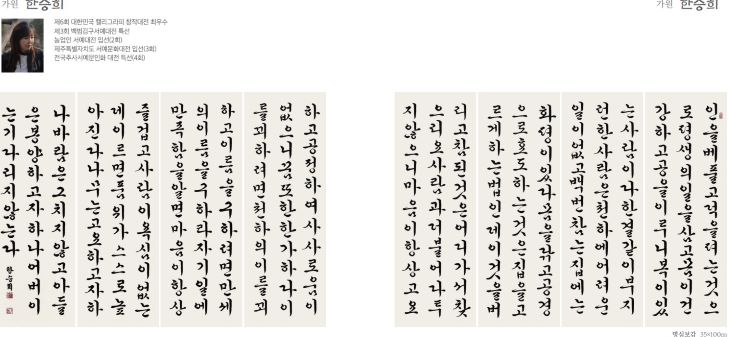 가원 한승희
제6회 대한민국 캘리그라피 창작대전 최우수
제3회 백범김구서예대전 특선
농업인 서예대전 입선(2회)
제주특별자치도 서예문화대전 입선(3회)
전국추사서예문인화 대전 특선(4회)
가원 한승희
인을베풀고덕을펴는것으
로평생의일을삼고몸이건
강하고공을이루니복이있
는사람이다한결같이부지
런한사람은천하에어려운
일이없고백번참는집에는
화평이있다몸을닦고공경
으로효도하는것은집을고
르게하는법인데이것을버
리고참된것은어디가서찾
으리오사람과더불어다투
지않으니마음이항상고요
하고공정하여사사로움이
없으니꿈또한한가하다이
를꾀하려면천하의이를꾀
하고이름을구하려면만세
의이름을구하라자기일에
만족함을알면마음이항상
즐겁고사람이욕심이없는
데이르면품위가스스로높
아진다나무는고요하고자하
나바람은그치지않고아들
은봉양하고자하나어버이
는기다리지않는다
한승희
명심보감 35×100cm